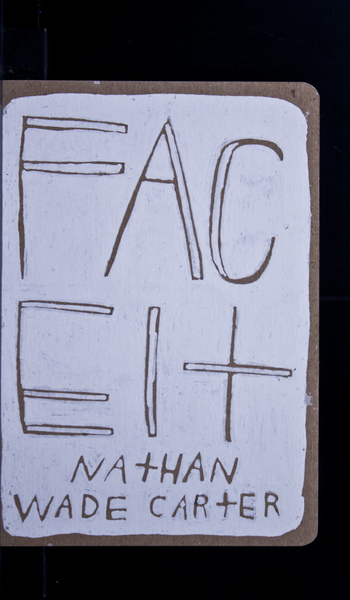 FAC
EIT
NATHAN
WADE CARTER